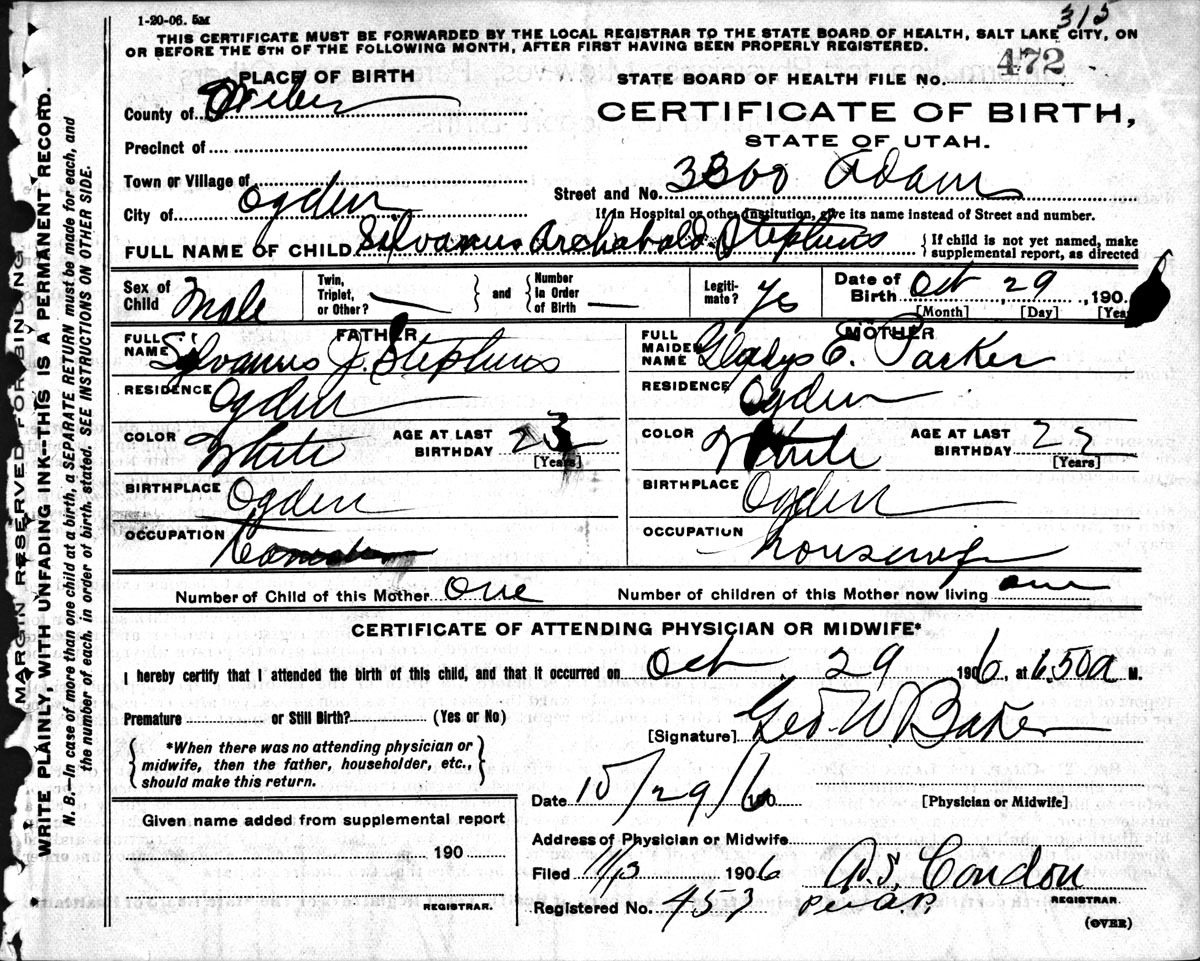 1-20-06. 5M
315
THIS CERTIFICATE MUST BE FORWARDED BY THE LOCAL REGISTRAR TO THE STATE BOARD OF HEALTH, SALT LAKE CITY, ON
OR BEFORE THE 5TH OF THE FOLLOWING MONTH, AFTER FIRST HAVING BEEN PROPERLY REGISTERED.
MARGIN RESERVED FOR BINDING.
WRITE PLAINLY, WITH UNFADING INK--THIS IS A PERMANENT RECORD.
N. B.--In case of more than one child at a birth, a SEPARATE RETURN must be made for each, and
the number of each, in order of birth, stated. SEE INSTRUCTIONS ON OTHER SIDE.
PLACE OF BIRTH
County of Weber
Precinct of
Town or Village of
City of Ogden
STATE BOARD OF HEALTH FILE NO. 472
CERTIFICATE OF BIRTH,
STATE OF UTAH.
Street and No. 3300 Adams
If in Hospital or other Institution, give its name instead of Street and number.
FULL NAME OF CHILD Silvanus Archabald Stephens
If child is not yet named, make
supplemental report, as directed
Sex of Child Male
Twin, Triplet, or Other? —
and
Number in Order of Birth —
Legitimate? Yes
Date of Birth Oct 29, 190
[Month] [Day]
FATHER
FULL NAME Sylvanus J. Stephens
RESIDENCE Ogden
COLOR White
AGE AT LAST BIRTHDAY 23
[Years]
BIRTHPLACE Ogden
OCCUPATION
MOTHER
FULL MAIDEN NAME Gladys E. Parker
RESIDENCE Ogden
COLOR White
AGE AT LAST BIRTHDAY 22
[Years]
BIRTHPLACE Ogden
OCCUPATION housewife
Number of Child of this Mother one
Number of children of this Mother now living one
CERTIFICATE OF ATTENDING PHYSICIAN OR MIDWIFE*
I hereby certify that I attended the birth of this child, and that it occurred on Oct. 29 1906, at 6.50 a M.
Premature or Still Birth? (Yes or No)
*When there was no attending physician or
midwife, then the father, householder, etc.,
should make this return.
[Signature] Geo. W. Baker
[Physician or Midwife]
Date 10/29/6 190
Given name added from supplemental report
190
REGISTRAR.
Address of Physician or Midwife
Filed 11/3 1906
A. S. Condon
REGISTRAR.
Registered No. 453
per A.P.
(OVER)